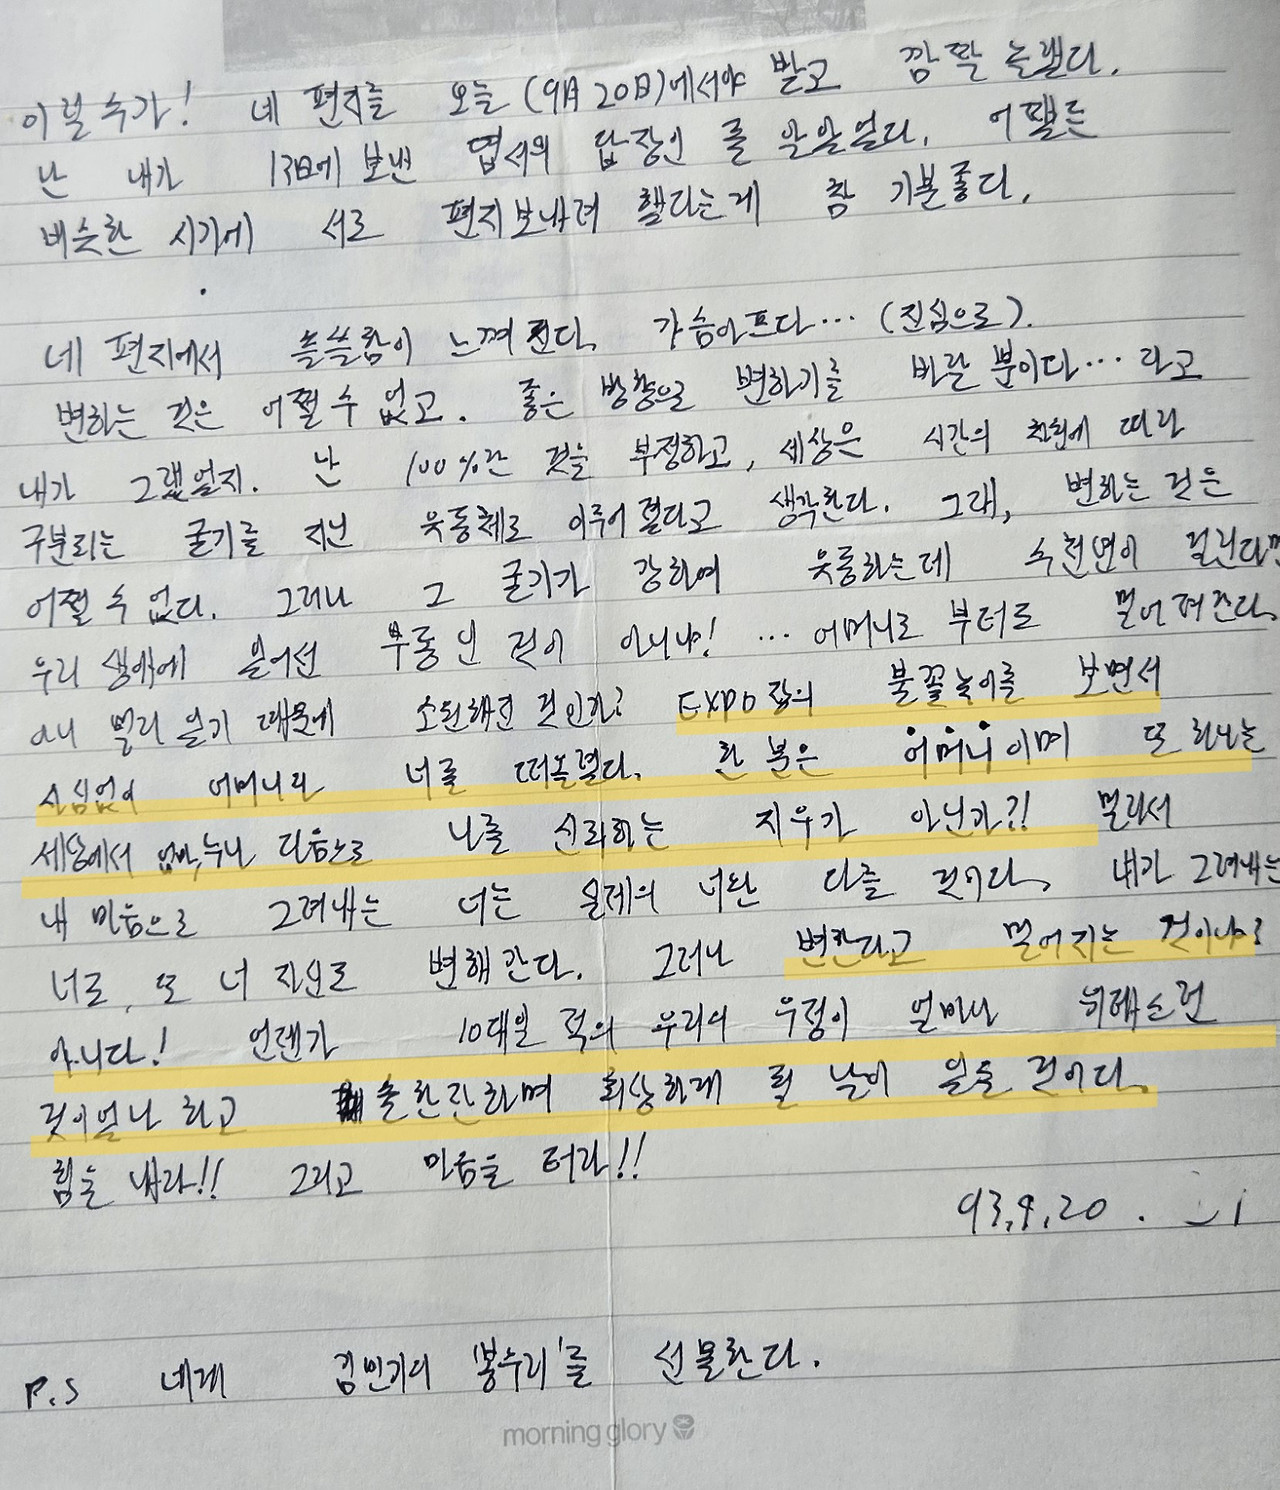 이럴수가! 네 편지를 오늘 (9月 20日)에서야 받고 깜짝 놀랬다.
난 내가 13日에 보낸 엽서의 답장인 줄 알았었다. 어쨌든
비슷한 시기에 서로 편지보내려 했다는게 참 기분좋다.
네 편지에서 쓸쓸함이 느껴진다. 가슴아프다… (진심으로).
변하는 것은 어쩔 수 없고. 좋은 방향으로 변하기를 바랄 뿐이다… 라고
내가 그랬었지. 난 100%란 것을 부정하고, 세상은 시간의 차원에 따라
구분되는 굳기를 지닌 유동체로 이루어졌다고 생각한다. 그래, 변하는 것은
어쩔 수 없다. 그러나 그 굳기가 강하여 유동하는데 수천년이 걸린다면
우리 생애에 있어선 부동인 것이 아니냐! … 어머니로부터도 멀어져간다.
아니 멀리 있기 때문에 소원해진 것인가? EXPO장의 불꽃놀이를 보면서
사심없이 어머니와 너를 떠올렸다. 한 분은 어머니이며 또 하나는
세상에서 엄마, 누나 다음으로 나를 신뢰하는 지우가 아닌가?! 멀리서
내 마음으로 그려내는 너는 실제의 너완 다를 것이다. 내가 그려내는
너로, 또 너 자신도 변해간다. 그러나 변한다고 멀어지는 것이냐?
아니다! 언젠가 10대일 적의 우리의 우정이 얼마나 위대스런
것이었나 하고 술한잔하며 회상하게 될 날이 있을 것이다.
힘을 내라!! 그리고 마음을 터라!!
93.9.20.
P.S 네게 김민기의 '봉우리'를 선물한다.
morning glory